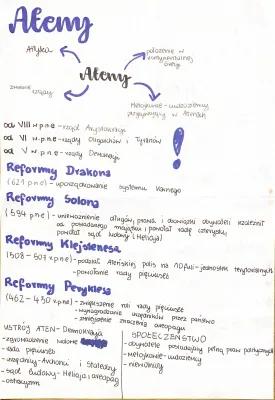 Ateny
Attyka
położenie w
kontynentalnej
Ateny
zmienne
rządy
Metojkowie - cudzoziemcy
przybywający w Atenach
od VIII w p.n.e - rządy Arystokracji
od VI w p.n.e - rządy Oligarchów i Tyranów
od V w p.n.e - rządy Demokracji
!
Reformy Drakona
(621 p.n.e) - uporządkowanie systemu karnego
Reformy Solona
(594 p.n.e) - umorzenie długów, prawa i obowiązki obywateli zależność
od posiadanego majątku i powołał radę czterystu,
powołał sąd ludowy (Heliaja)
Reformy Klejstenesa
(508 - 507 r.p.n.e) - podział Ateńskiej polis na 10 fyli - jednostek terytorialnych
- powołanie rady pięciuset
Reformy Peryklesa
(462 - 430 r.p.n.e) - zwiększenie roli rady pięciuset
- wynagrodzenie urzędników przez państwo
- zmniejszenie znaczenia areopagu
USTRÓJ ATEN - Demokracja
- zgromadzenie ludowe
- rada pięciuset
- urzędnicy - Archonci i Stratedzy
- sąd ludowy - Heliaja, areopag
- ostracyzm
SPOŁECZEŃSTWO
- obywatele posiadający pełnię praw politycznych
- metojkowie - cudzoziemcy
- niewolnicy